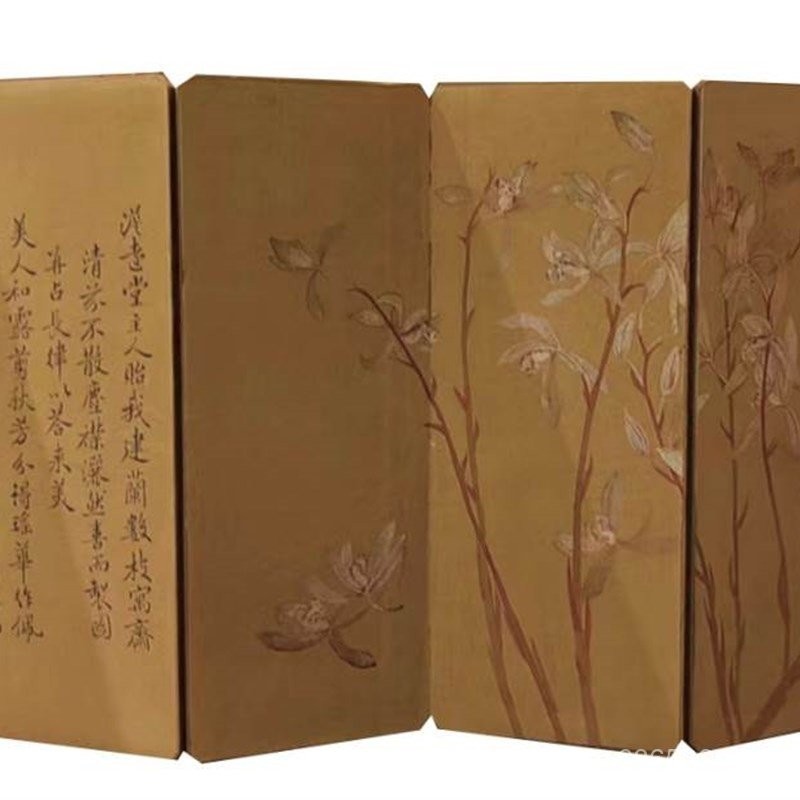 堂主人貽我建蘭數枝寓齋
清芬不散塵襟灑然書而製圖
并占長律以答来美
美人和露剪秋芳分得瑤華作佩